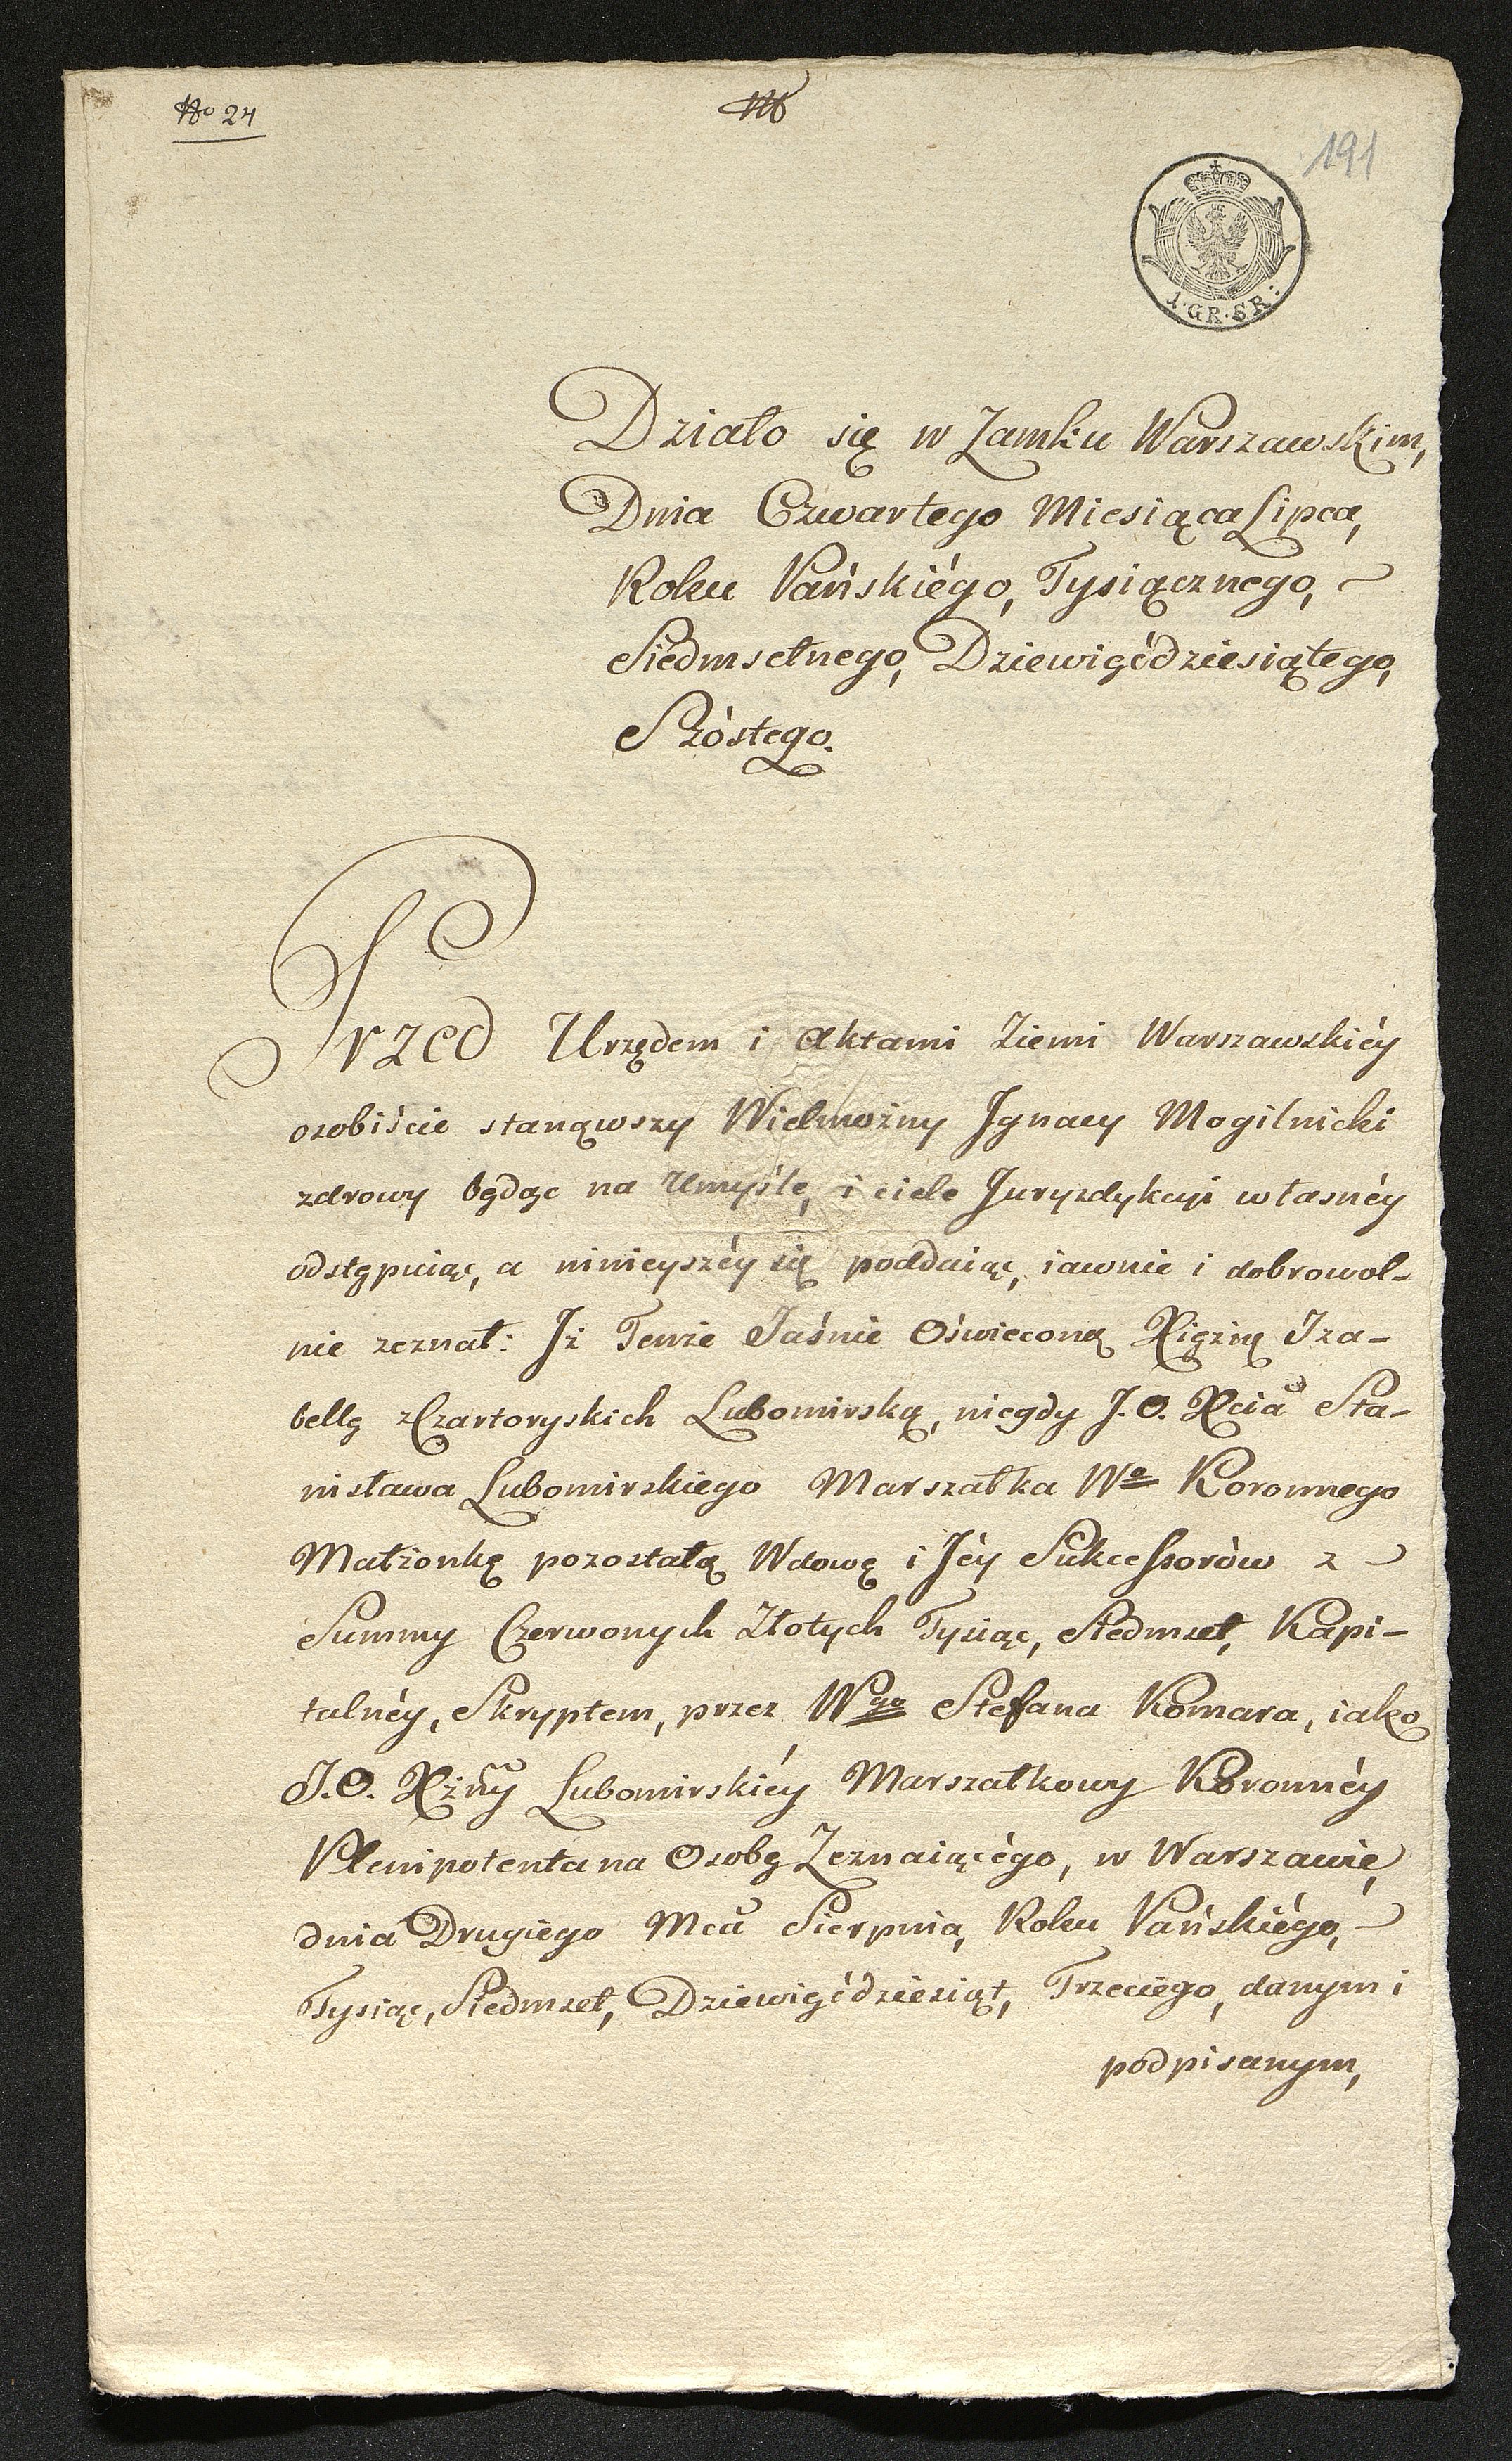 No 24
191
1·GR·SR:
Działo się w Zamku Warszawskim,
Dnia Czwartego Miesiąca Lipca,
Roku Pańskiégo, Tysiącznego,
Siedmsetnego, Dziewięćdziesiątego,
Szóstego.
Przed Urzędem i Aktami Ziemi Warszawskiéy
osobiście stanąwszy Wielmożny Jgnacy Mogilnicki
zdrowy będąc na Umyśle, i ciele Juryzdykcyi własnéy
odstępuiąc, a ninieyszéy się poddaiąc, iawnie i dobrowol-
nie zeznał: Jż Tenże Jaśnie Oświeconą Xiężnę Jza-
bellę z Czartoryskich Lubomirską, niegdy J. O. Xcia Sta-
nisława Lubomirskiego Marszałka Wo Koronnego
Małżonkę pozostałą Wdowę i Jéy Sukcessorów z
Summy Czerwonych Złotych Tysiąc, Siedmset, Kapi-
talnéy, Skryptem, przez Wgo Stefana Komara, iako
J. O. Xżny Lubomirskiéy Marszałkowy Koronnéy
Plenipotenta na Osobę Zeznaiącégo, w Warszawie,
dnia Drugiego Mca Sierpnia, Roku Pańskiégo,
Tysiąc, Siedmset, Dziewięćdziesiąt, Trzeciego, danym i
podpisanym,